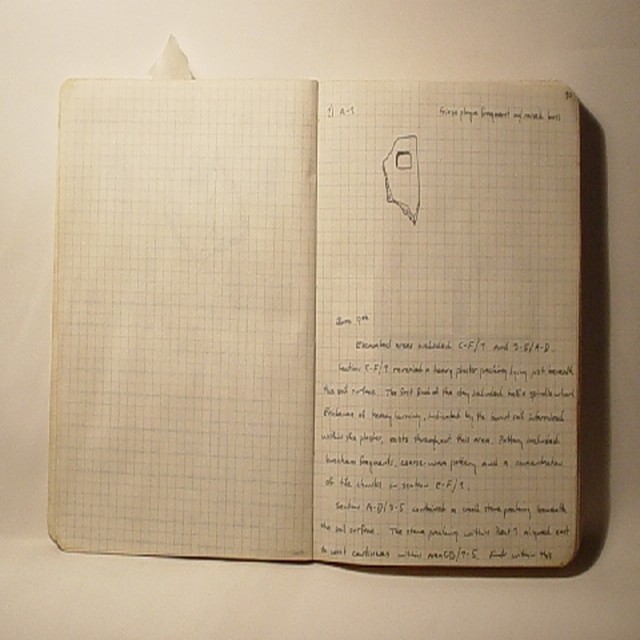 1) A-1
plaque fragment w/ raised boss
June 9th
Excavated areas included C-F/9 and 3-5/A-D.
Section C-F/9 revealed a heavy plaster packing lying just beneath
the soil surface. The first find of the day included half a spindle whorl.
Evidence of heavy burning, indicated by the burnt soil intermixed
within the plaster, exists throughout this area. Pottery included
bucchero fragments, coarse-ware pottery and a concentration
of tile chunks in section E-F/9.
Section A-D/3-5 contained a small stone packing beneath
the soil surface. The stone packing within aligned east
to west continues within area /3-5. Finds within this